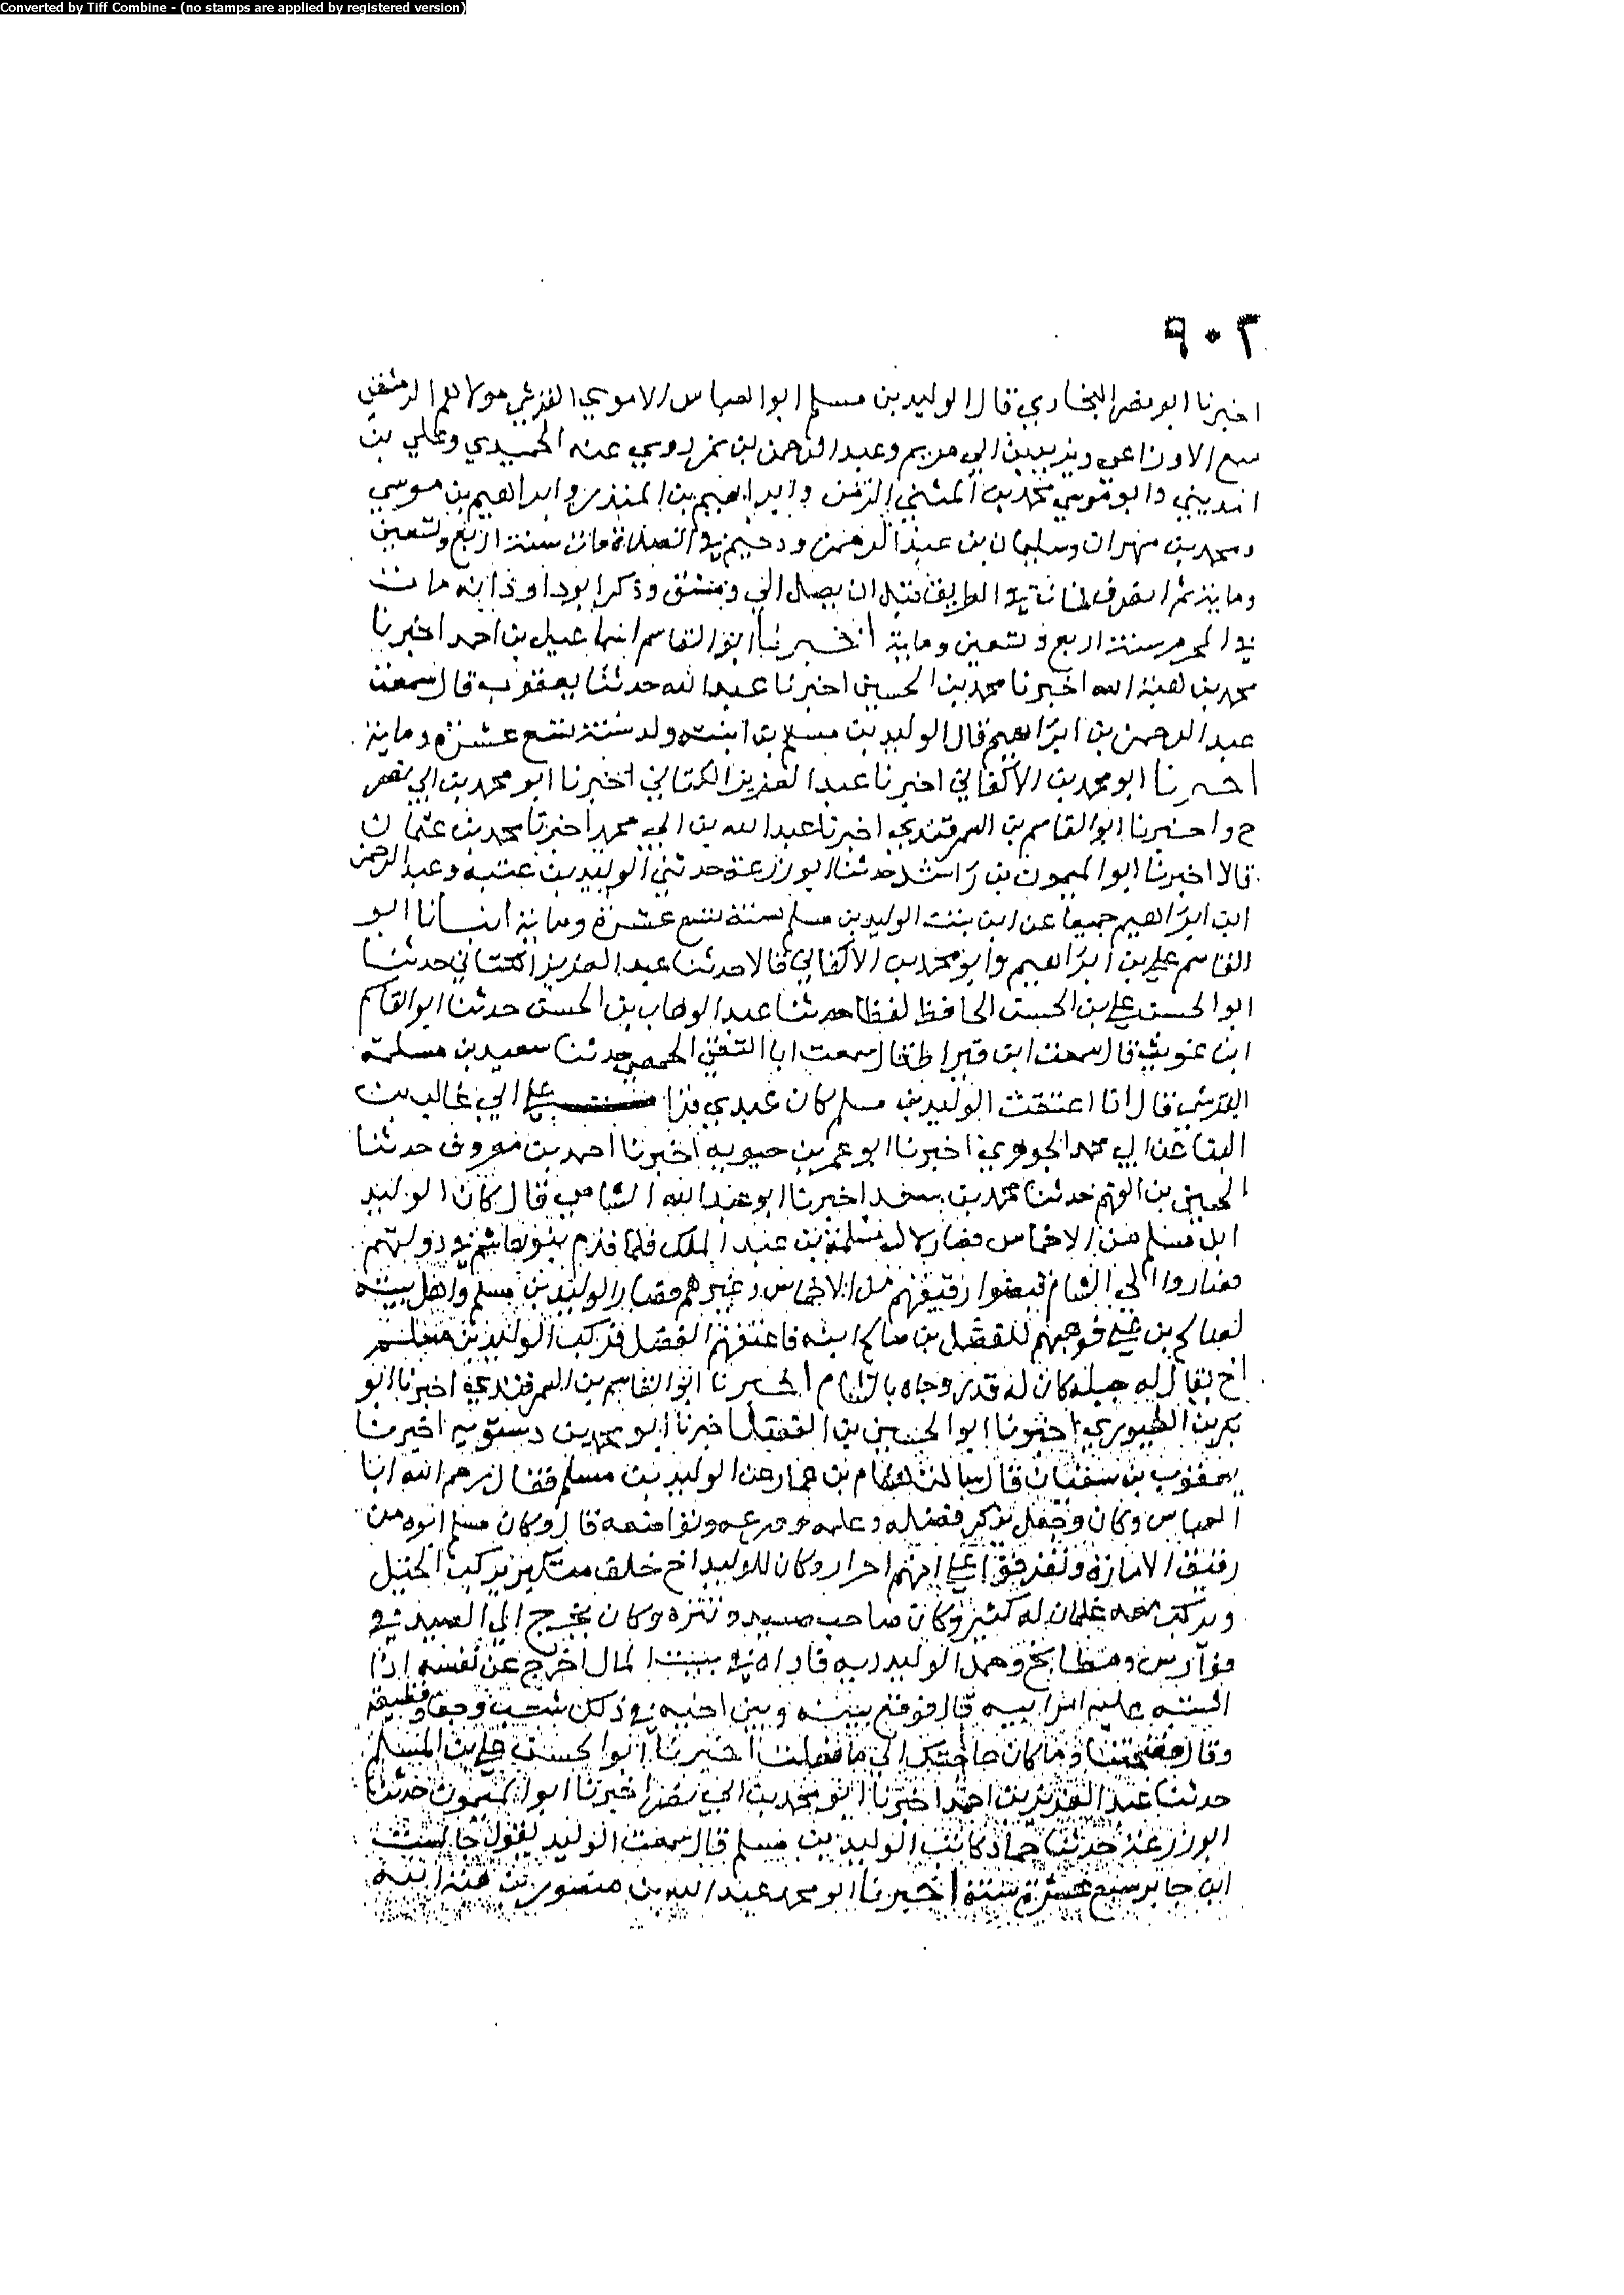 Converted by Tiff Combine - (no stamps are applied by registered version)
٩٠٢
اخبرنا ابو نصر البخاري قال الوليد بن مسلم ابو العباس الاموي القرشي مولاهم الدمشقي
سمع الاوزاعي ويزيد بن ابي مريم وعبد الرحمن بن نمر روي عنه الحميدي وعلي بن
المديني وابو موسي محمد بن المثني الزمن وابراهيم بن المنذر وابراهيم بن موسي
ومحمد بن مهران وسليمان بن عبد الرحمن ودحيم في الصلاة مات سنة اربع وتسعين
وماية ثم انصرف فمات في الطريق قبل ان يصل الي دمشق وذكر ابو داود انه مات
في المحرم سنة اربع وتسعين وماية اخبرنا ابو القاسم اسماعيل بن احمد اخبرنا
محمد بن هبة الله اخبرنا محمد بن الحسين اخبرنا عبد الله حدثنا يعقوب قال سمعت
عبد الرحمن بن ابراهيم قال الوليد بن مسلم بن ابنته ولد سنة تسع عشرة وماية
اخبرنا ابو محمد بن الاكفاني اخبرنا عبد العزيز الكتاني اخبرنا ابو محمد بن ابي نصر
ح واخبرنا ابو القاسم بن السمرقندي اخبرنا عبد الله بن ابي محمد اخبرنا محمد بن عثمان
قالا اخبرنا ابو الميمون بن راشد حدثنا ابو زرعة حدثني الوليد بن عتبه وعبد الرحمن
ابن ابراهيم جميعا عن ابن بنت الوليد بن مسلم سنة تسع عشرة وماية انبانا ابو
القاسم علي بن ابراهيم وابو محمد بن الاكفاني قالا حدثنا عبد العزيز الكتاني حدثنا
ابو الحسن علي بن الحسن الحافظ لفظا حدثنا عبد الوهاب بن الحسن حدثنا ابو القاسم
ابن غويث قال سمعت ابن قيراط قال سمعت ابا التقي الحمصي حدثنا سعيد بن مسلمة
القرشي قال انا اعتقت الوليد بن مسلم كان عبدي قرا علي ابي غالب بن
البنا عن ابي محمد الجوهري اخبرنا ابو عمر بن حيويه اخبرنا احمد بن معروف حدثنا
الحسين بن الفهم حدثنا محمد بن سعد اخبرنا ابو عبد الله الشامي قال كان الوليد
ابن مسلم من الاخماس فصار لال مسلمة بن عبد الملك فلما قدم بنو هاشم في دولتهم
فصاروا الي الشام قبضوا رقيقهم من الاخماس وغيرهم فصار الوليد بن مسلم واهل بيته
لصالح بن علي فوهبهم للفضل بن صالح ابنه فاعتقهم الفضل فركب الوليد بن مسلم
اخ يقال له جبلة كان له قدر وجاه بالشام اخبرنا ابو القاسم بن السمرقندي اخبرنا ابو
بكر بن الطيوري اخبرنا ابو الحسين بن الفضل اخبرنا ابو محمد بن دستويه اخبرنا
يعقوب بن سفيان قال سالت هشام بن عمار عن الوليد بن مسلم فقال رحم الله ابا
العباس وكان وجعل يذكر فضله وعلمه وورعه وتواضعه قال وكان مسلم ابوه من
رقيق الامارة وتفرقوا علي انهم احرار وكان للوليد اخ خلف متكبر يركب الخيل
ويركب معه غلمان له كثير وكان صاحب صيد وتنزه وكان يخرج الي الصيد في
فوارس ومطابخ وحمل الوليد ديه فاداه في بيت المال اخرج عن نفسه اذا
اشتبه عليه امر ابيه قال فوقع بينه وبين اخيه في ذلك شغب وجفا وقطيعة
وقال فضحتنا وما كان حاجتك الي ما فعلت اخبرنا ابو الحسن علي بن المسلم
حدثنا عبد العزيز بن احمد اخبرنا ابو محمد بن ابي نصر اخبرنا ابو الميمون حدثنا
ابو زرعة حدثنا حماد كاتب الوليد بن مسلم قال سمعت الوليد يقول جالست
ابن جابر سبع عشرة سنة اخبرنا ابو محمد عبد الله بن منصور بن هبة الله